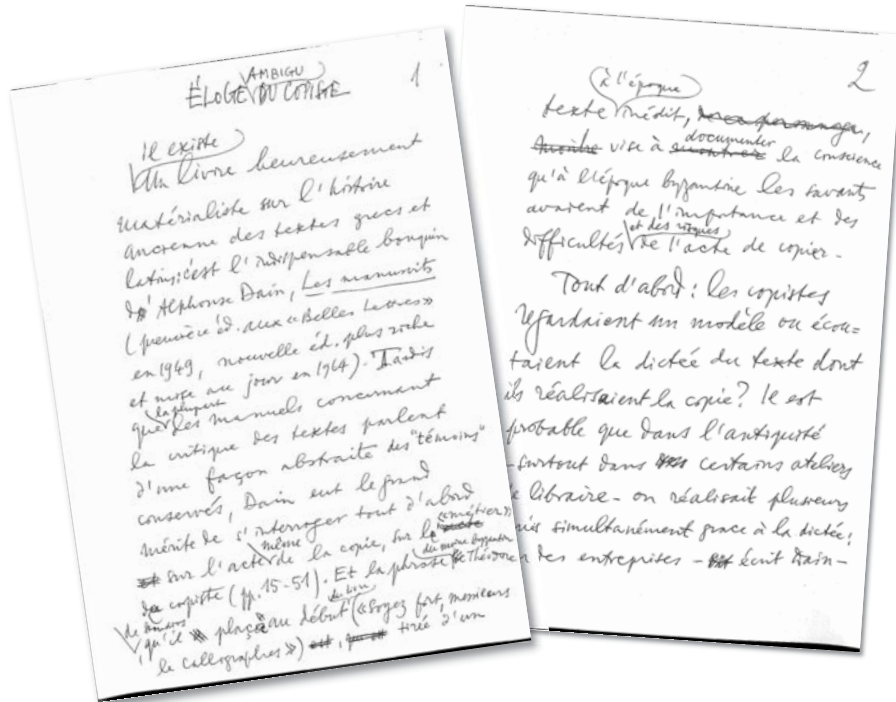 1
AMBIGU
ÉLOGE DU COPISTE
il existe
Un livre heureusement
matérialiste sur l'histoire
ancienne des textes grecs et
latins: c'est l'indispensable bouquin
d'Alphonse Dain, Les manuscrits
(première éd. aux «Belles Lettres»
en 1949, nouvelle éd. plus riche
et mise au jour en 1964). Tandis
la plupart
que des manuels concernant
la critique des textes parlent
d'une façon abstraite des "témoins"
conservés, Dain eut le grand
mérite de s'interroger tout d'abord
même «métier»
sur l'acte de la copie, sur le
du moine byzantin
de copiste (pp. 15-51). Et la phrase de Théodore
du livre
qu'il place au début («Soyez fort, messieurs
le calligraphes») tirée d'un
2
à l'époque
texte inédit,
documenter
vise à la conscience
qu'à l'époque byzantine les savants
avaient de l'importance et des
et des risques
difficultés de l'acte de copier.
Tout d'abord: les copistes
regardaient un modèle ou écou=
taient la dictée du texte dont
ils réalisaient la copie? Il est
probable que dans l'antiquité
-surtout dans certains ateliers
de libraire- on réalisait plusieurs
simultanément grace à la dictée:
des entreprises - écrit Dain-